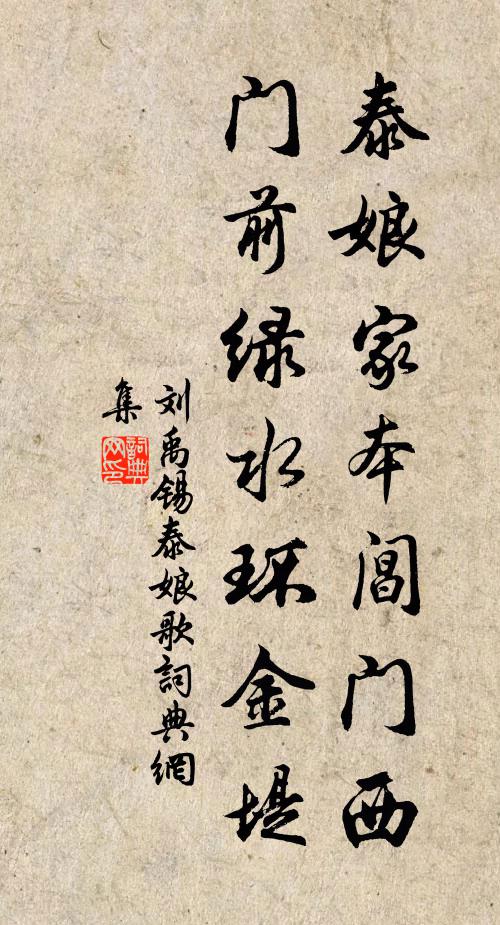 泰娘家本阊门西
门前绿水环金堤
刘禹锡泰娘歌詞典網
集
詞典网印